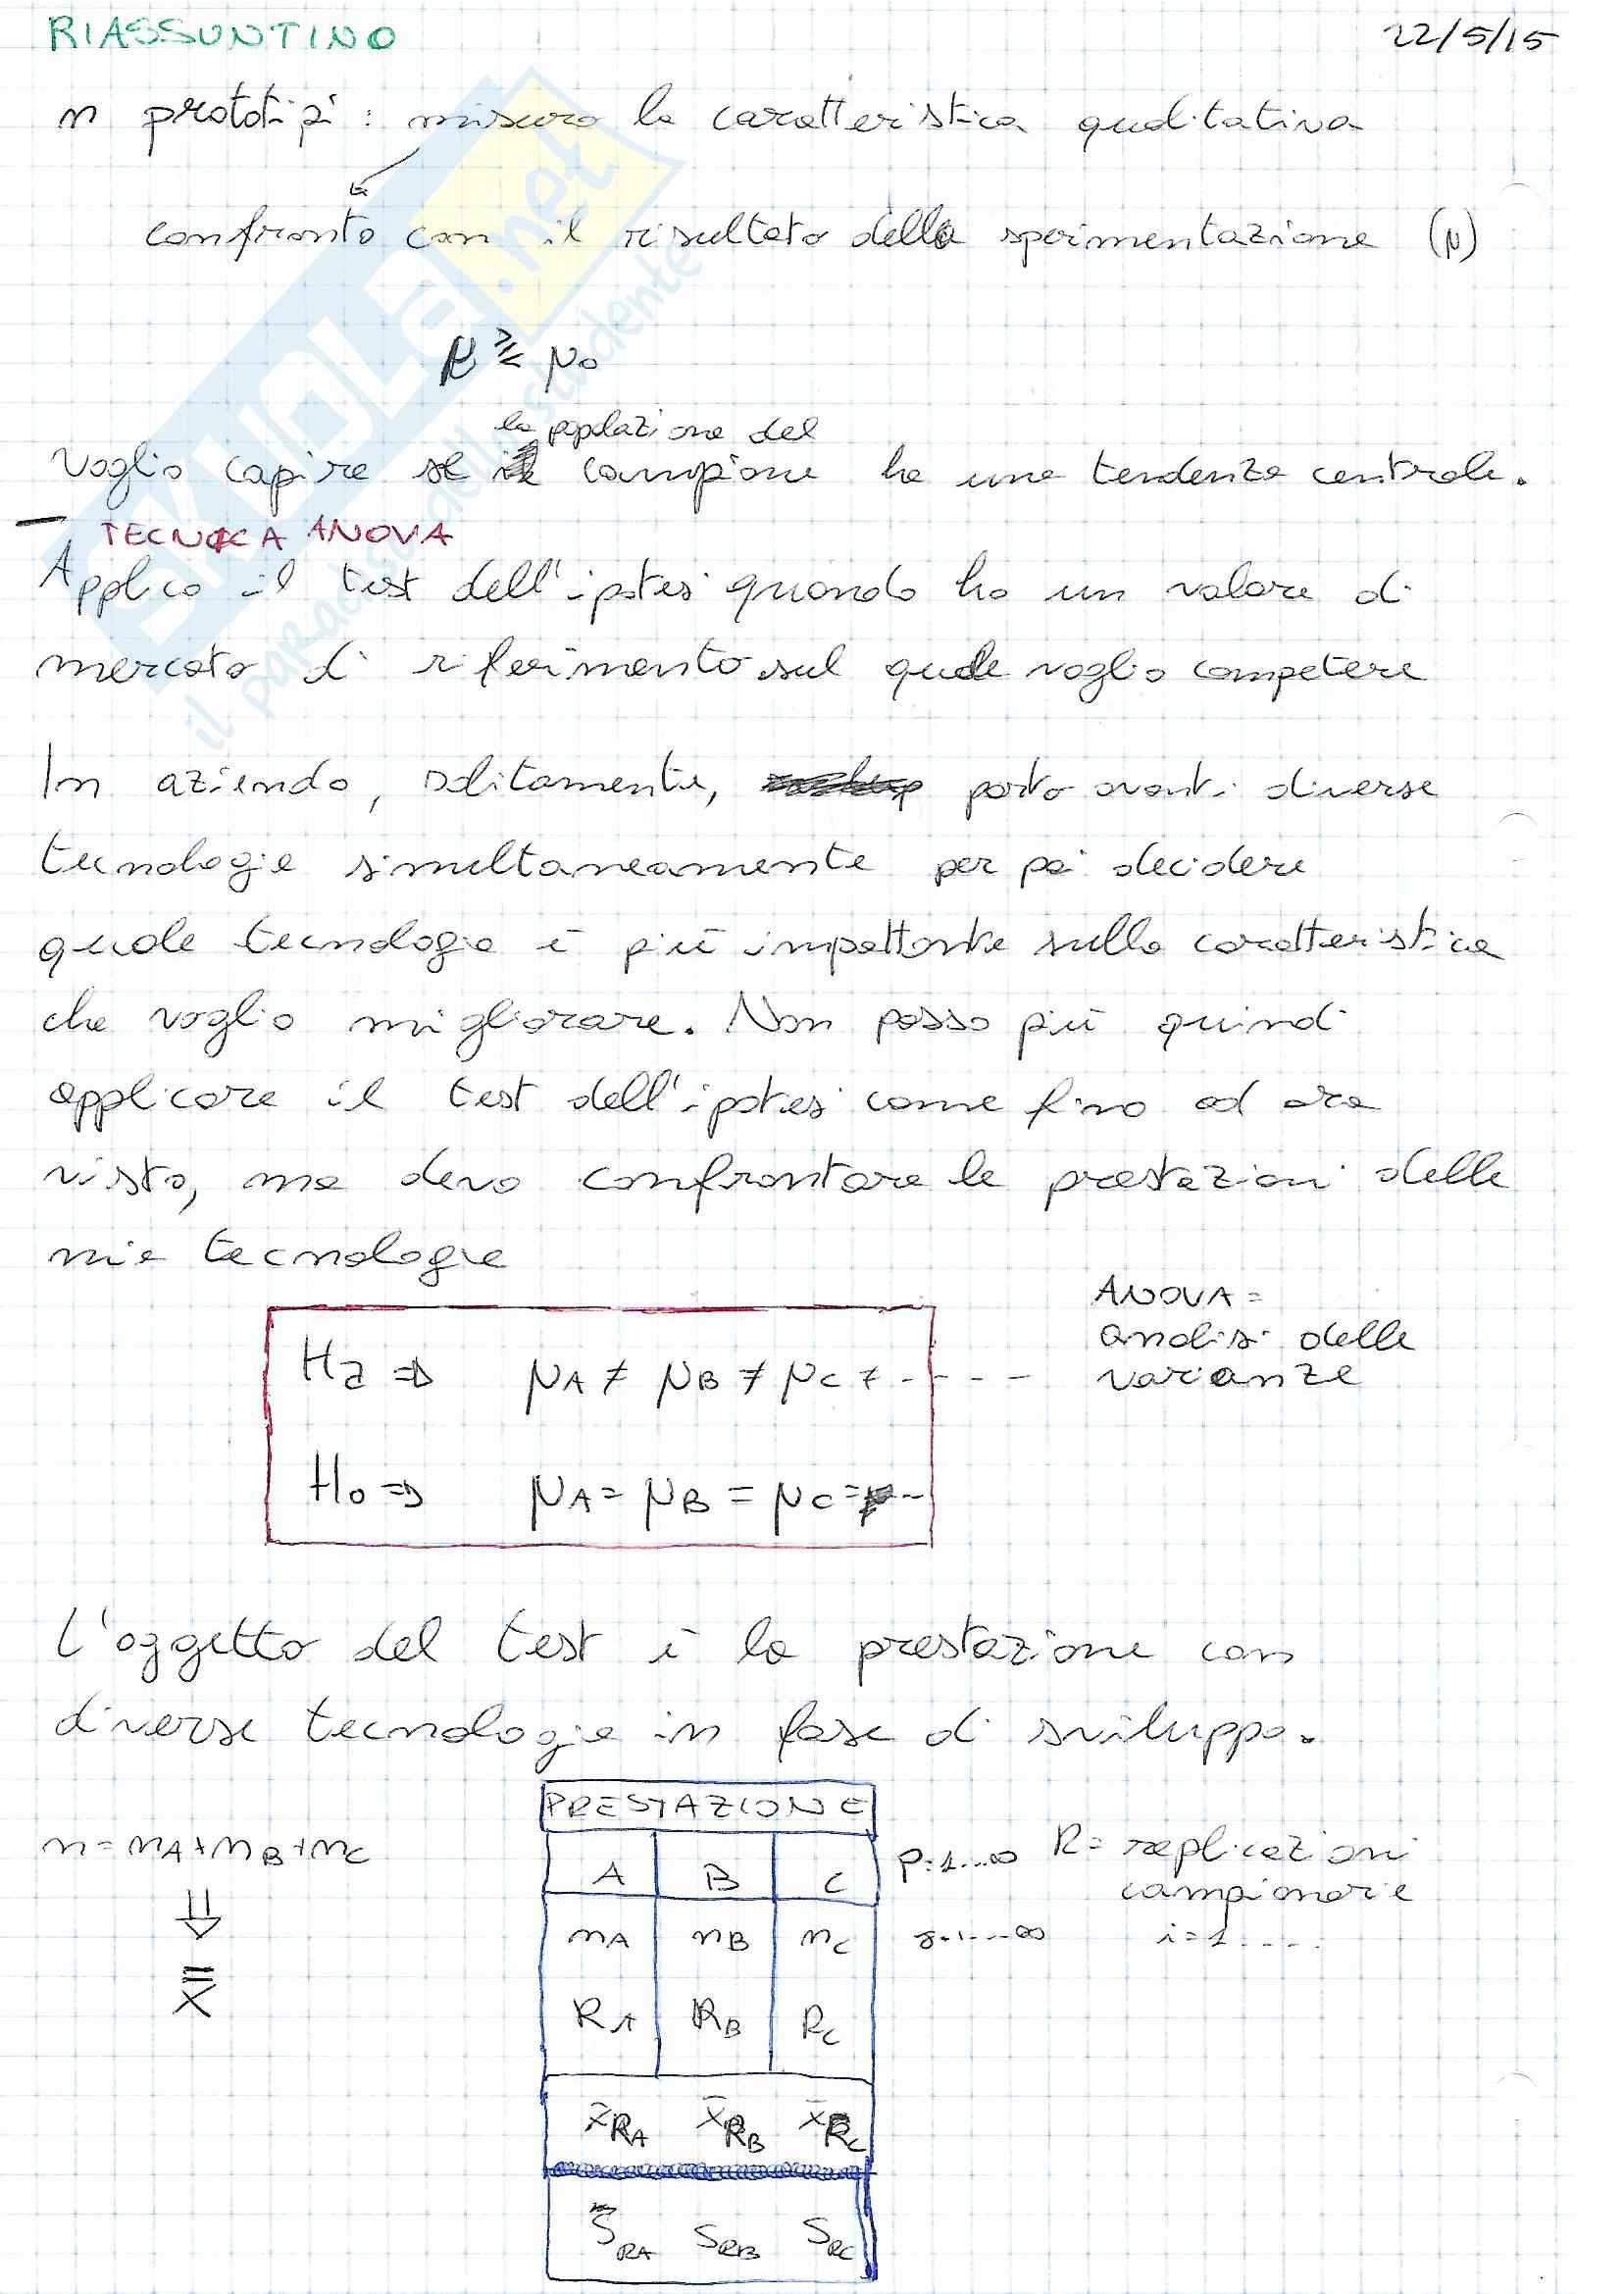 RIASSUNTINO 22/5/15
n prototipi : misuro la caratteristica qualitativa
confronto con il risultato della sperimentazione (μ)
μ ≷ μ0
la popolazione del
Voglio capire se campione ha una tendenza centrale.
TECNICA ANOVA
Applico il test dell'ipotesi quando ho un valore di
mercato di riferimento sul quale voglio competere
In azienda, solitamente, porto avanti diverse
tecnologie simultaneamente per poi decidere
quale tecnologia è più impattante sulla caratteristica
che voglio migliorare. Non posso più quindi
applicare il test dell'ipotesi come fino ad ora
visto, ma devo confrontare le prestazioni delle
mie tecnologie
ANOVA =
analisi delle
varianze
Ha ⇒ μA ≠ μB ≠ μC ≠ - - - -
H0 ⇒ μA = μB = μC = --
L'oggetto del test è la prestazione con
diverse tecnologie in fase di sviluppo.
PRESTAZIONE
n = nA + nB + nC
A B C P: 1...∞ R = replicazioni
campionarie
nA nB nC 1...∞ i = 1.....
X̿
RA RB RC
x̄RA x̄RB x̄RC
SRA SRB SRC
SKUOLA.net
il paradiso dello studente